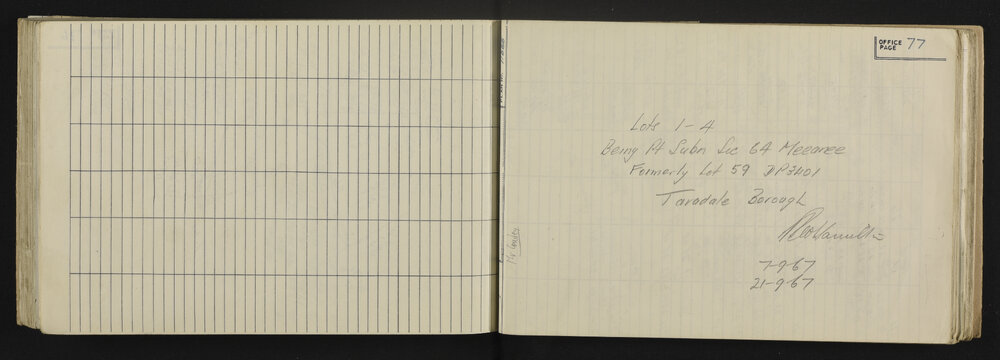 OFFICE PAGE 77
Lots 1-4
Being Pt Subn Sec 64 Meeanee
Formerly Lot 59 DP3401
Taradale Borough
7-9-67
21-9-67